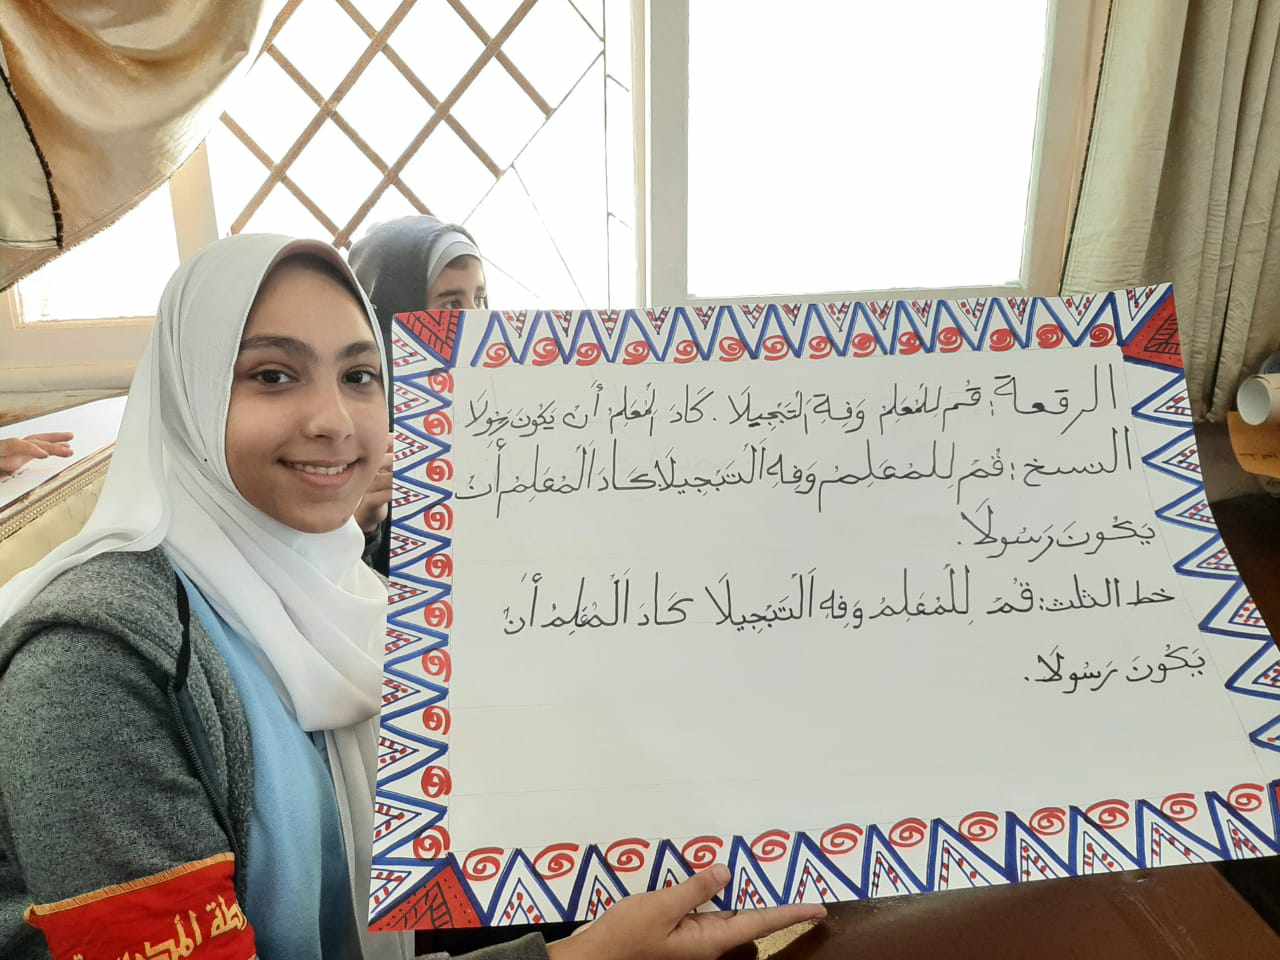 الرقعة: قُم لِلمُعَلِم وَفِهِ التَبْجِيلَا. كَادَ المُعَلِمُ أَنْ يَكونَ رَسُولَا
النسخ: قُمْ لِلمُعَلِمُ وَفِهِ اَلْتَبْجِيلَا كَادَ اَلْمُعَلِمُ أَنْ
يَكُونَ رَسُولَا.
خط الثلث: قُمْ لِلْمُعَلِمُ وَفِهِ اَلْتَبْجِيلَا كَادَ اَلْمُعَلِمُ أَنْ
يَكُونَ رَسُولَا.